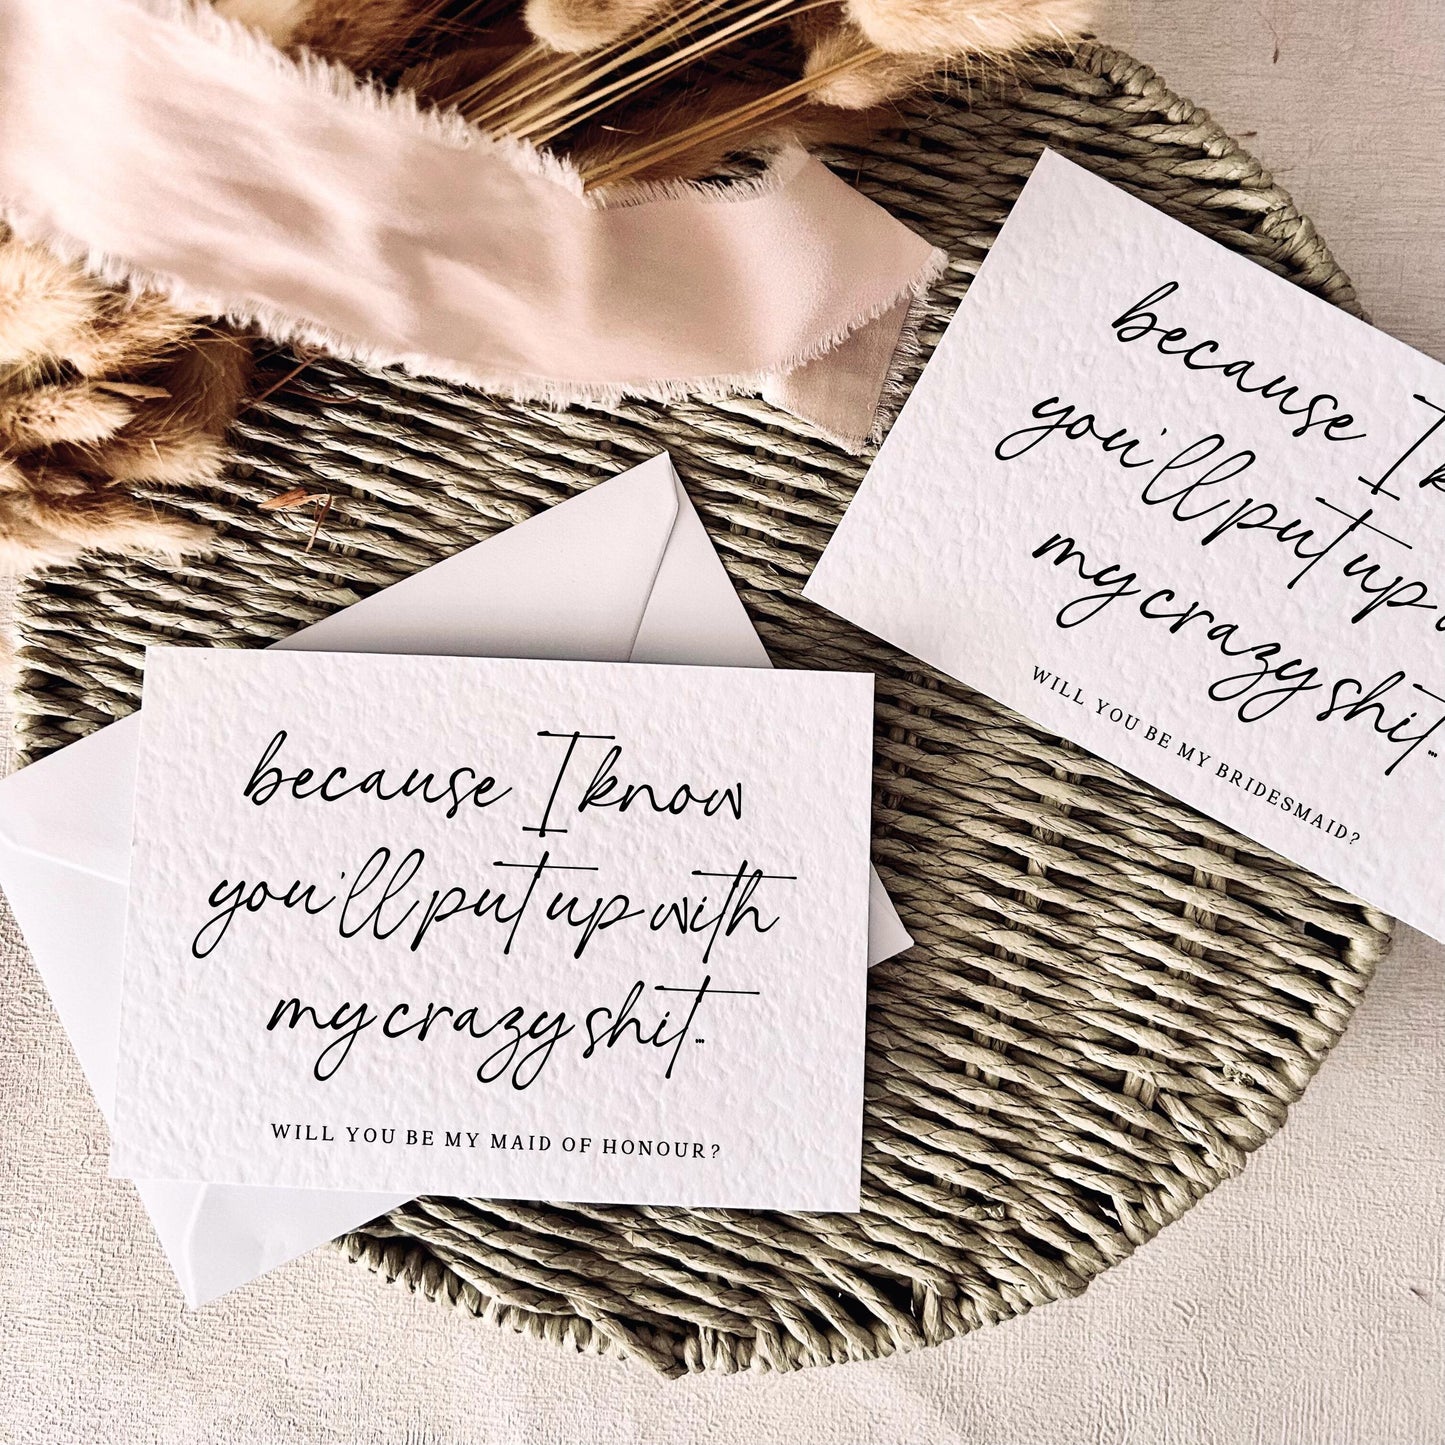 because I know
you'll put up with
my crazy shit...
WILL YOU BE MY MAID OF HONOUR?
because I
you'll put up
my crazy shit...
WILL YOU BE MY BRIDESMAID?